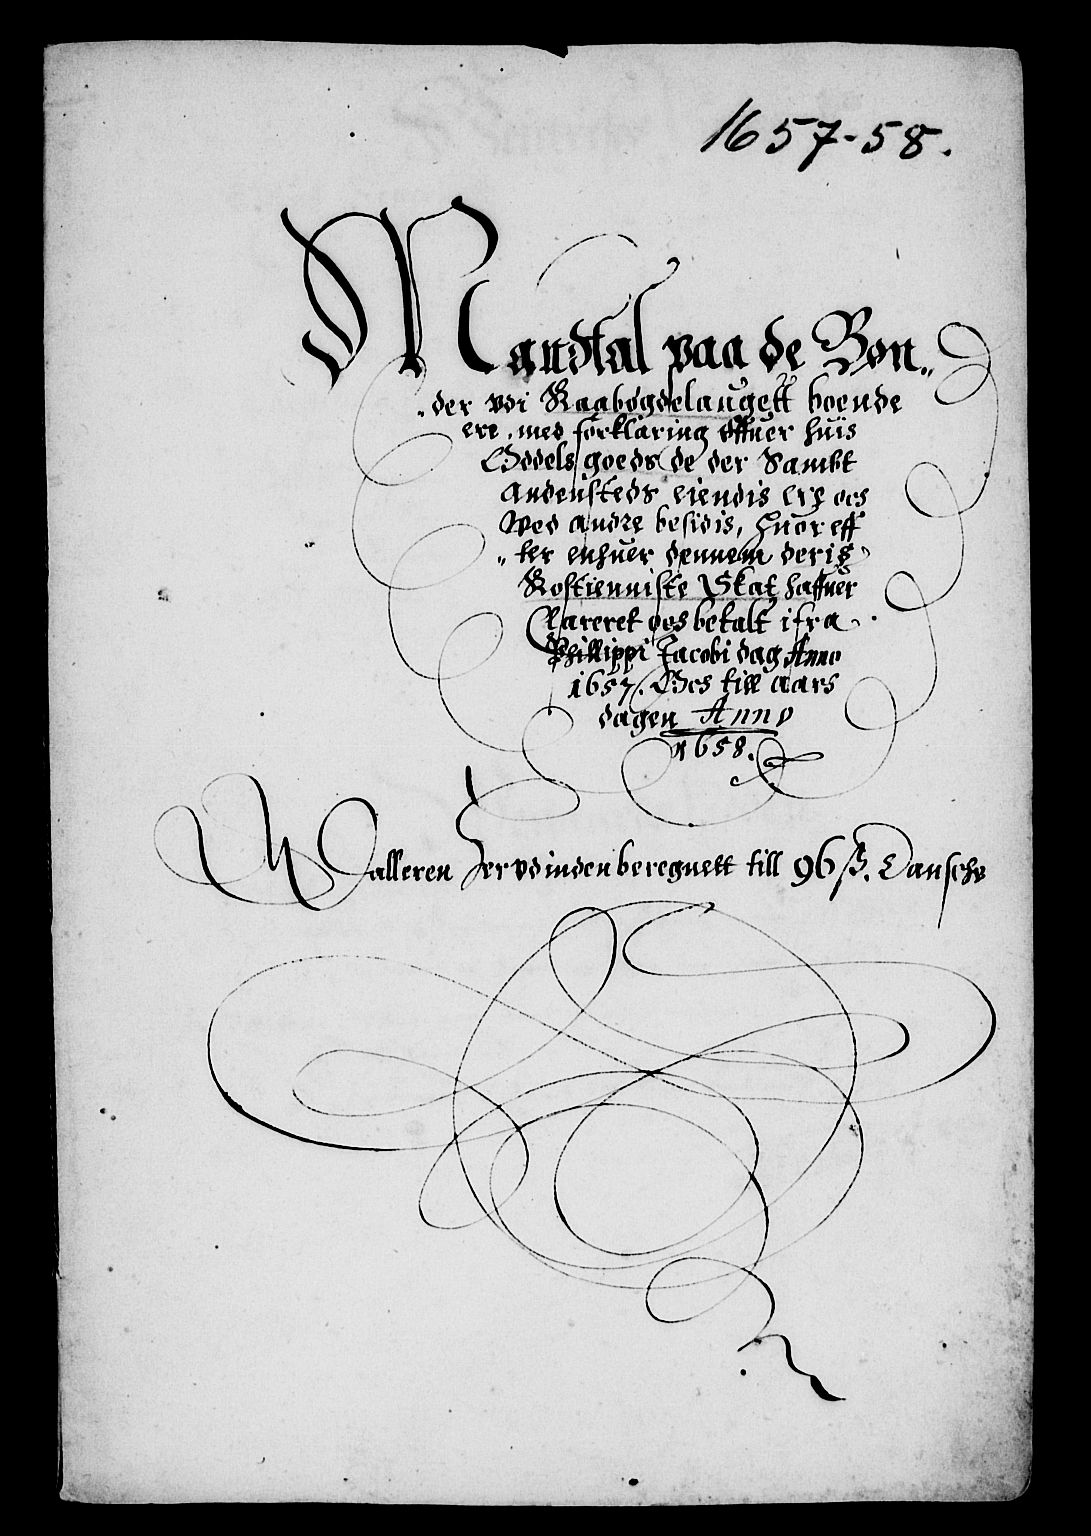 1657-58.
Mandtal paa de Bon„
„der vdi Raabøgdelaugett boende
ere, med forklaring offuer huis
Oddels goeds de der Sambt
Andensteds eiendis ere oes
Wed andre besidis, huor eff
„ter enhuer dennem deris
Rostienniste Skat haffuer
Clareret oes betalt ifra
Phillippi Jacobi dag Anno
1657. Oes till aars
dagen Anno
1658.
Dalleren Her vdinden beregnett till 96 ß. Dansche